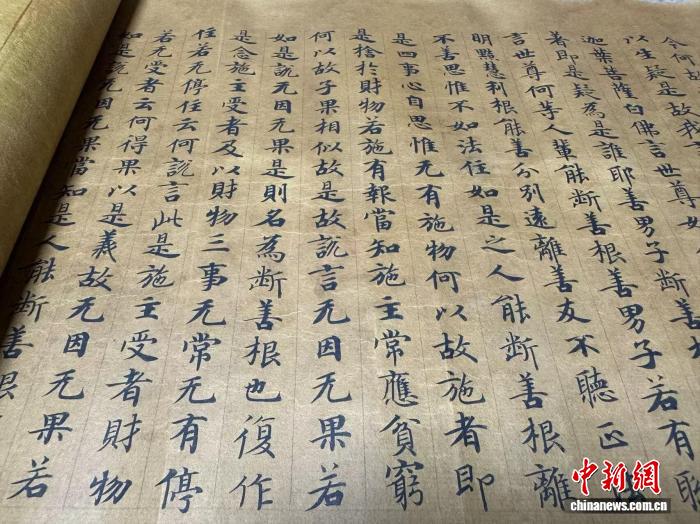 以生疑是故我
迦葉菩薩白佛言世尊如
著即是疑為是誰耶善男子斷善
言世尊何等人輩能斷善根善男子若有
明點慧利根能善分別遠離善友不聽正
不善思惟不如法住如是之人能斷善根離
是四事心自思惟无有施物何以故施者即
是捨於財物若施有報當知施主常應貧窮
何以故子果相似故是故說言无因无果若
如是說无因无果是則名為斷善根也復作
是念施主受者及以財物三事无常无有停
住若无停住云何說言此是施主受者財物
若无受者云何得果以是義故无因无果若
如是說无因无果當知是人能斷善根
中新網
chinanews.com